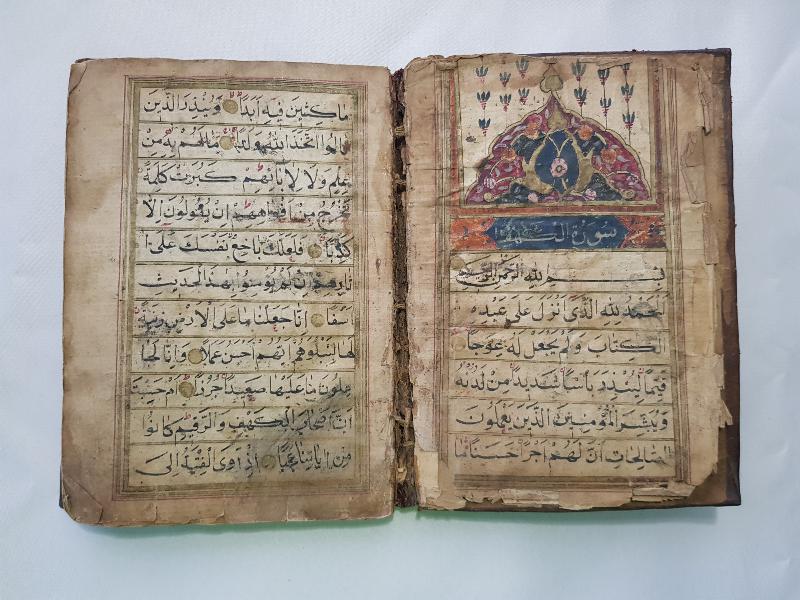 سورة الكهف
بسم الله الرحمن الرحيم
الحمد لله الذى انزل على عبده
الكتاب ولم يجعل له عوجا
قيما لينذر باسا شديدا من لدنه
ويبشر المؤمنين الذين يعملون
الصالحات ان لهم اجرا حسنا
ماكثين فيه ابدا وينذر الذين
قالوا اتخذ الله ولدا مالهم به من
علم ولا لابائهم كبرت كلمة
تخرج من افواههم ان يقولون الا
كذبا فلعلك باخع نفسك على ا
ثارهم ان لم يؤمنوا بهذا الحديث
اسفا انا جعلنا ما على الارض زينة
لها لنبلوهم ايهم احسن عملا وانا لجا
علون ما عليها صعيدا جرزا ام حسبت
ان اصحاب الكهف والرقيم كانوا
من اياتنا عجبا اذ اوى الفتية الى